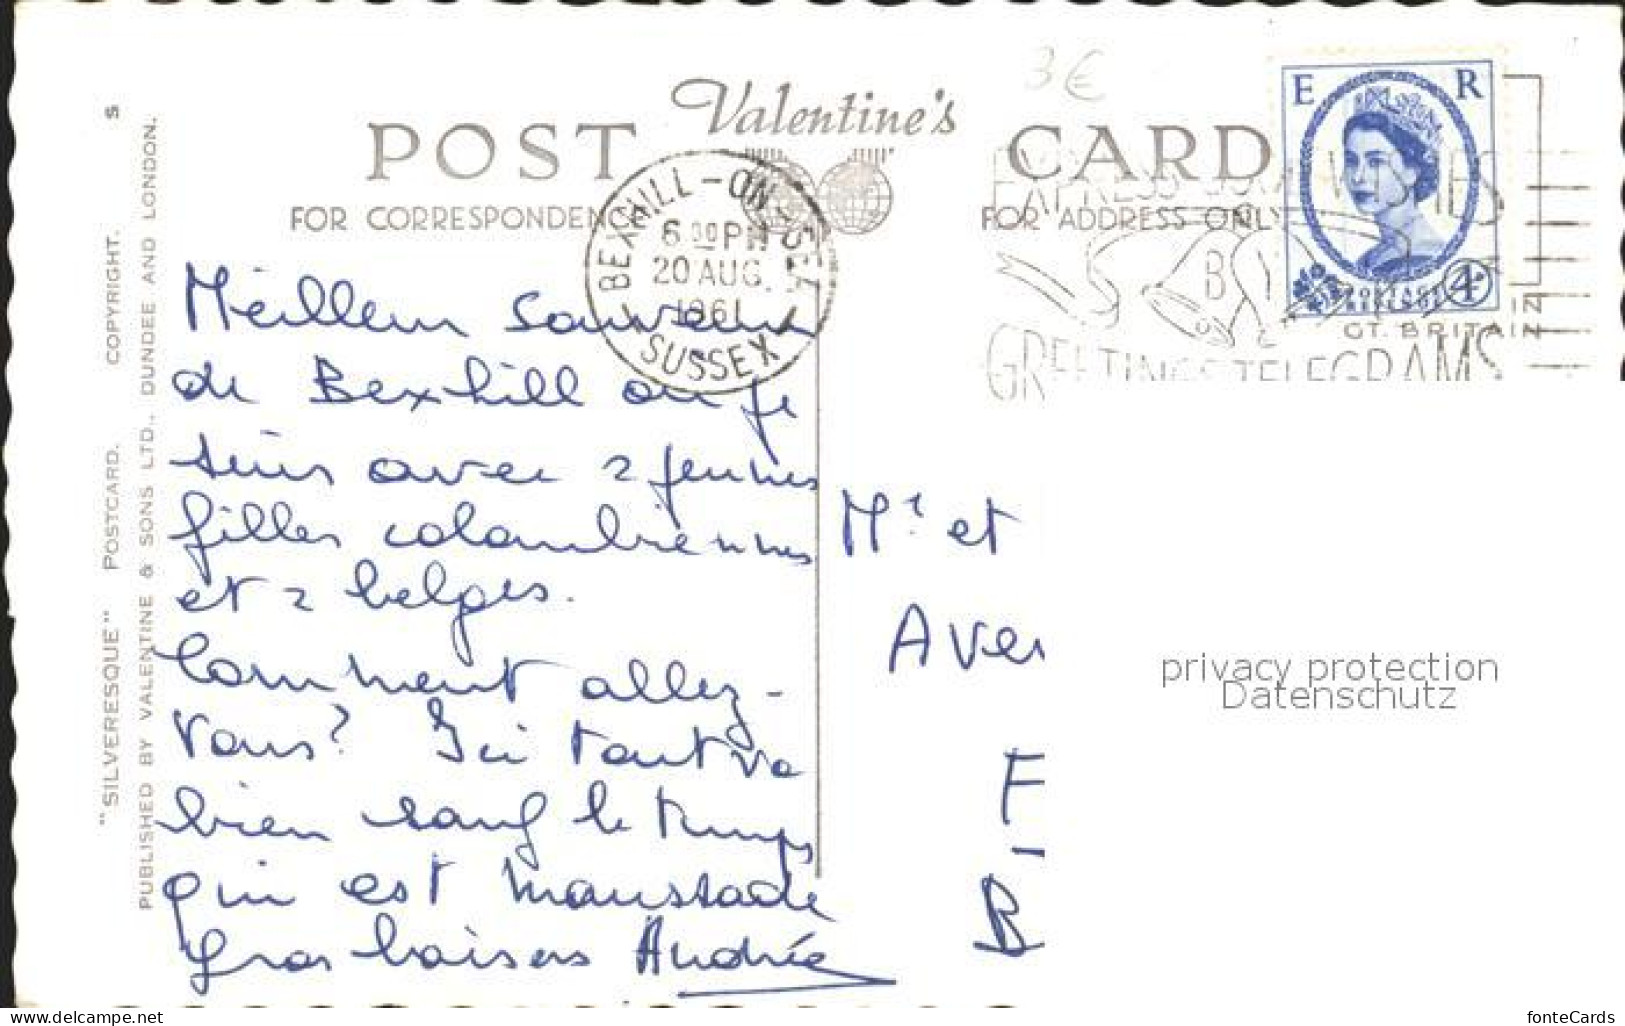 3€
Valentine's
POST CARD
FOR CORRESPONDENCE
FOR ADDRESS ONLY
E R
POSTAGE REVENUE 4D
GT. BRITAIN
BEXHILL-ON-SEA
6 00 PM
20 AUG.
1961
SUSSEX
EXPRESS YOUR WISHES
BY
GREETINGS TELEGRAMS
"SILVERESQUE" POSTCARD. COPYRIGHT. S
PUBLISHED BY VALENTINE & SONS LTD., DUNDEE AND LONDON.
Meilleur Souvenir
de Bexhill où je
suis avec 2 jeunes
filles colombiennes
et 2 belges.
Comment allez-
vous? Ici tout va
bien sauf le temps
qui est maussade
Gros baisers Andrée
Mr et
Ave
F
B
privacy protection
Datenschutz
delcampe.net
fonteCards